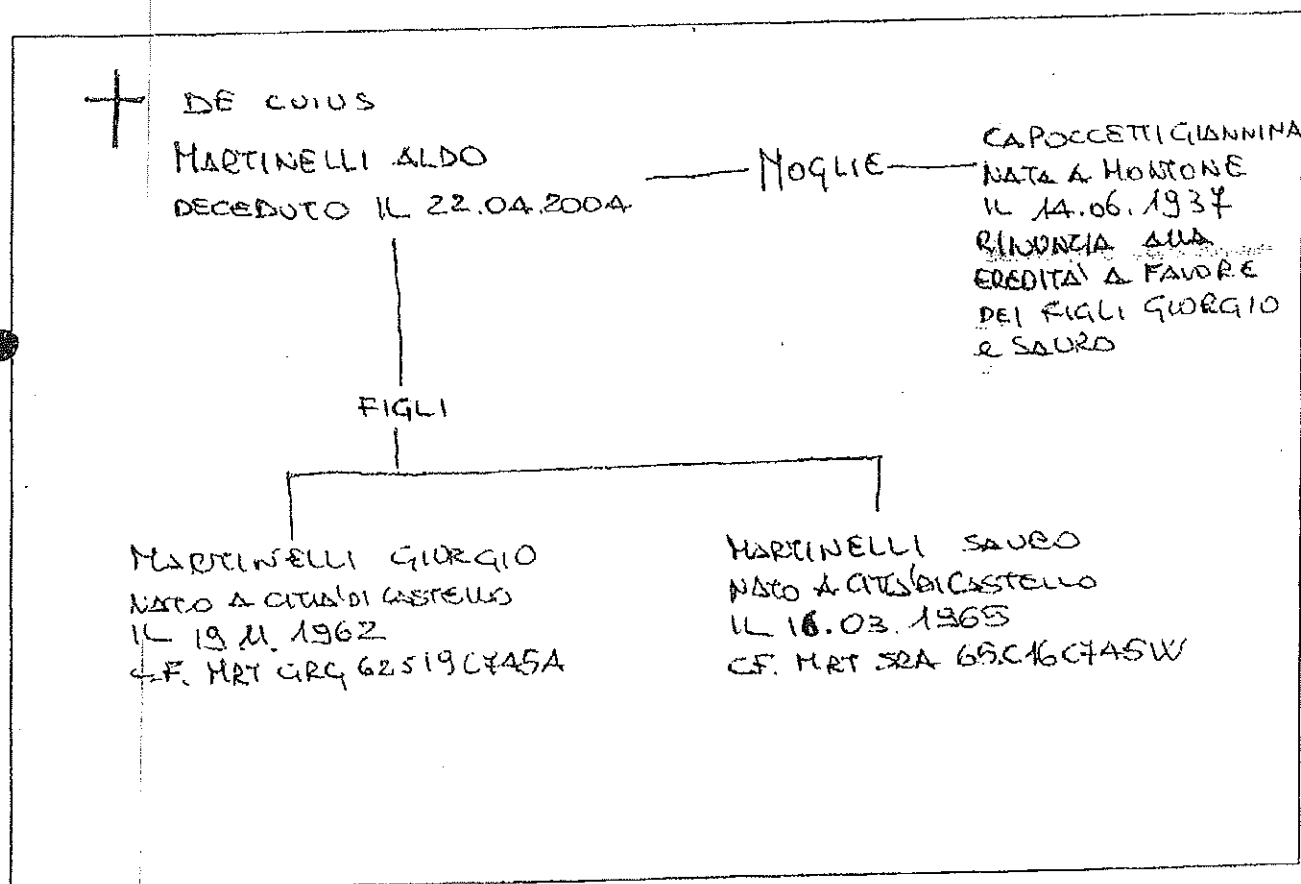 DE CUIUS
MARTINELLI ALDO
DECEDUTO IL 22.04.2004
MOGLIE
CAPOCCETTI GIANNINA
NATA A MONTONE
IL 14.06.1937
RINUNCIA ALLA
EREDITA' A FAVORE
DEI FIGLI GIORGIO
e SAURO
FIGLI
MARTINELLI GIORGIO
NATO A CITTA' DI CASTELLO
IL 19.11.1962
C.F. MRT GRG 62S19C745A
MARTINELLI SAURO
NATO A CITTA' DI CASTELLO
IL 16.03.1965
CF. MRT SRA 65C16C745W